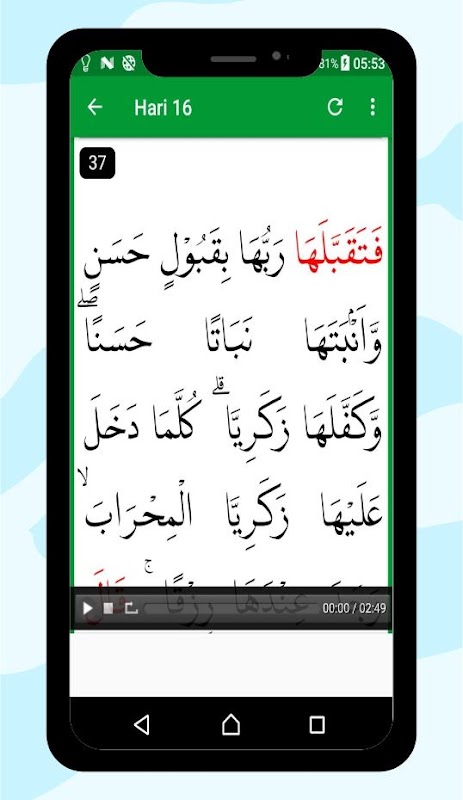 81% 05:53
Hari 16
37
فَتَقَبَّلَهَا رَبُّهَا بِقَبُوْلٍ حَسَنٍ
وَّاَنْۢبَتَهَا نَبَاتًا حَسَنًاۖ
وَّكَفَّلَهَا زَكَرِيَّاۗ كُلَّمَا دَخَلَ
عَلَيْهَا زَكَرِيَّا الْمِحْرَابَۙ
وَجَدَ عِنْدَهَا رِزْقًاۚ قَالَ
00:00 / 02:49